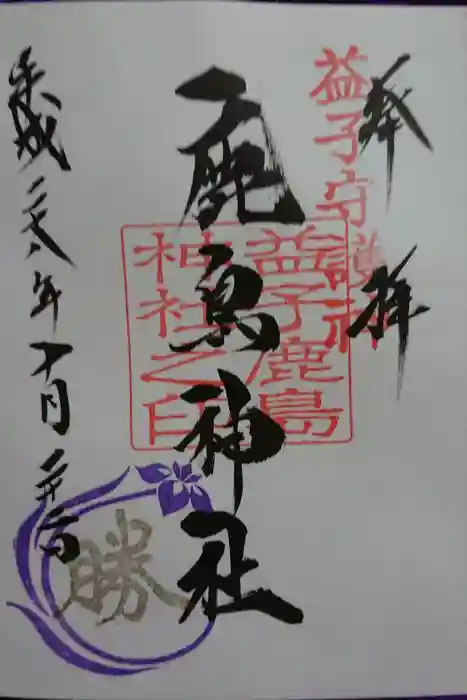 奉拝
益子守護神
鹿島神社
益子鹿島
神社之印
平成二十八年十月二十二日
勝